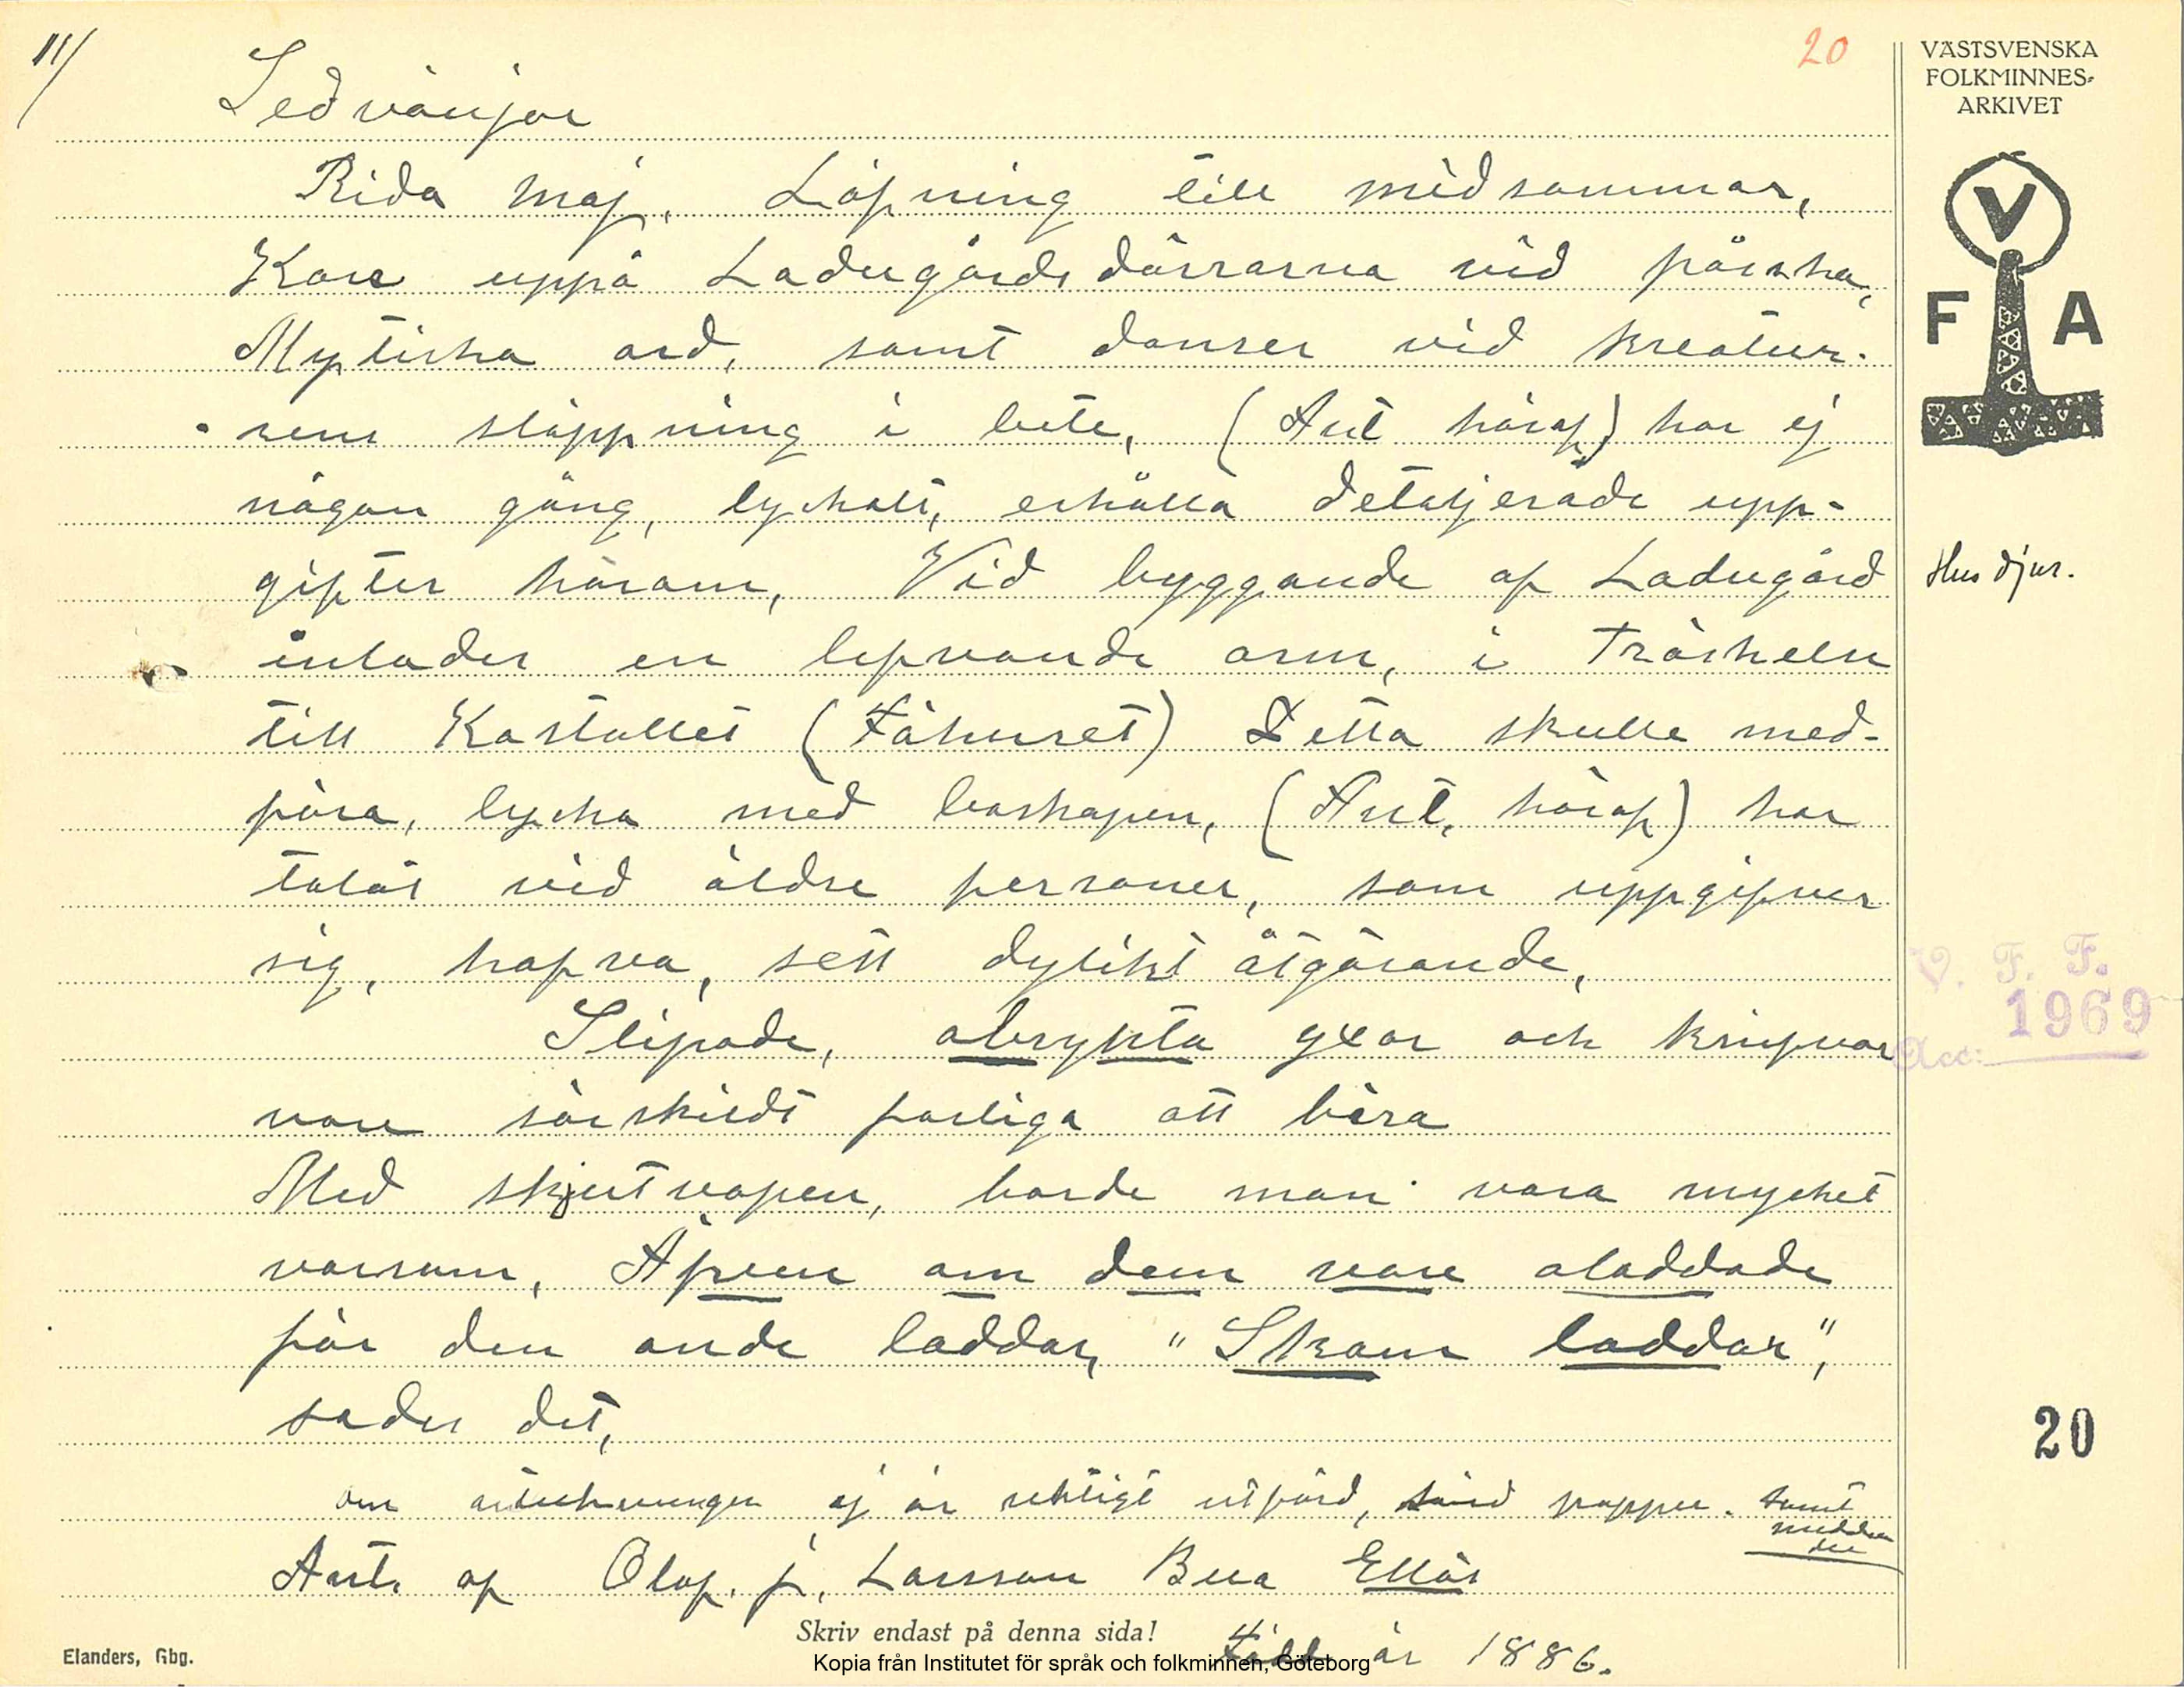 11/
20
Sedvänjor
Rida maj, Löpning till midsommar,
Kors uppå Ladugårdsdörrarna vid påska,
Mytiska ord, samt danser vid kreatur-
rens släppning i bete, (Ant häraf) har ej
någon gång, lyckats, erhålla detaljerade upp-
gifter härom, Vid byggande af Ladugård
inlades en lefvande orm, i Tröskeln
till Kostallet (Fähuset) Detta skulle med-
föra, lycka med boskapen, (Ant. häraf) har
talat vid äldre personer, som uppgifver
sig, hafva, sett dylikt åtgörande,
Slipade, obrykta yxor och knifvar
vore särskildt farliga att bära
Med skjutvapen, borde man vara mycket
varsam, Äfven om dem vore oladdade
för den onde laddar, "Skam laddar",
sades det,
om anteckningen ej är riktigt utförd, sänd papper. samt
meddelande
Ant. af Olof. J. Larsson Bua Ellös
Född år 1886.
Skriv endast på denna sida!
Kopia från Institutet för språk och folkminnen, Göteborg
Elanders, Gbg.
VÄSTSVENSKA
FOLKMINNES-
ARKIVET
V
F A
Husdjur.
V. F. F.
Acc: 1969
20